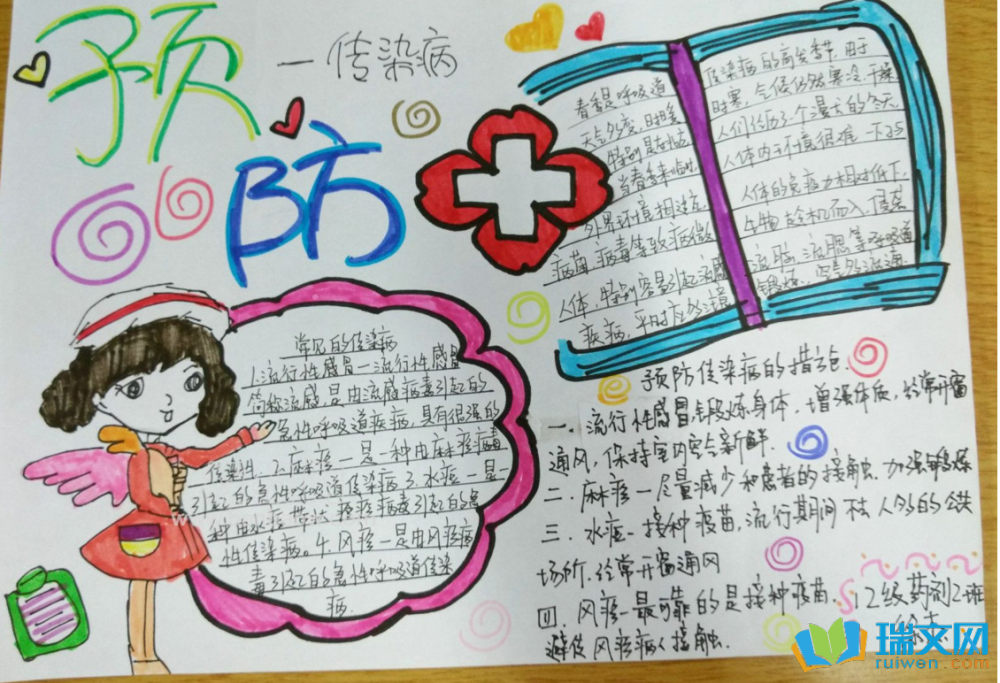 预
防
一传染病
春季是呼吸道
天气多变,时暖
特别是
当春季来临时
外界环境相适应
病菌 病毒等致病微
人体,特别容易引起流感
疾病,平时应
传染病的高发季节,由于
时寒,气候仍然寒冷、干燥
人们经历了个漫长的冬天,
人体内干环境很难一下子
人体的免疫力相对低下,
生物趁机而入,侵袭
流脑 流腮等呼吸道
锻炼,
常见的传染病
1.流行性感冒一流行性感冒
简称流感是由流感病毒引起的
急性呼吸道疾病,具有很强的
传染性.2.麻疹一是一种由麻疹病毒
引起的急性呼吸道传染病3.水痘一是一
种由水痘 带状 疱疹病毒引起的急
性传染病。4.风疹一是由风疹病
毒引起的急性呼吸道传染
病.
预防传染病的措施.
一.流行性感冒,锻炼身体.增强体质,经常开窗
通风,保持室内空气新鲜.
二.麻疹一尽量减少和患者的接触.加强锻炼
三.水痘-接种疫苗,流行期间不去人多的公共
场所.经常开窗通风
四.风疹一最可靠的是接种疫苗.
避免风疹病人接触.
12级药剂2班
瑞文网
ruiwen.com